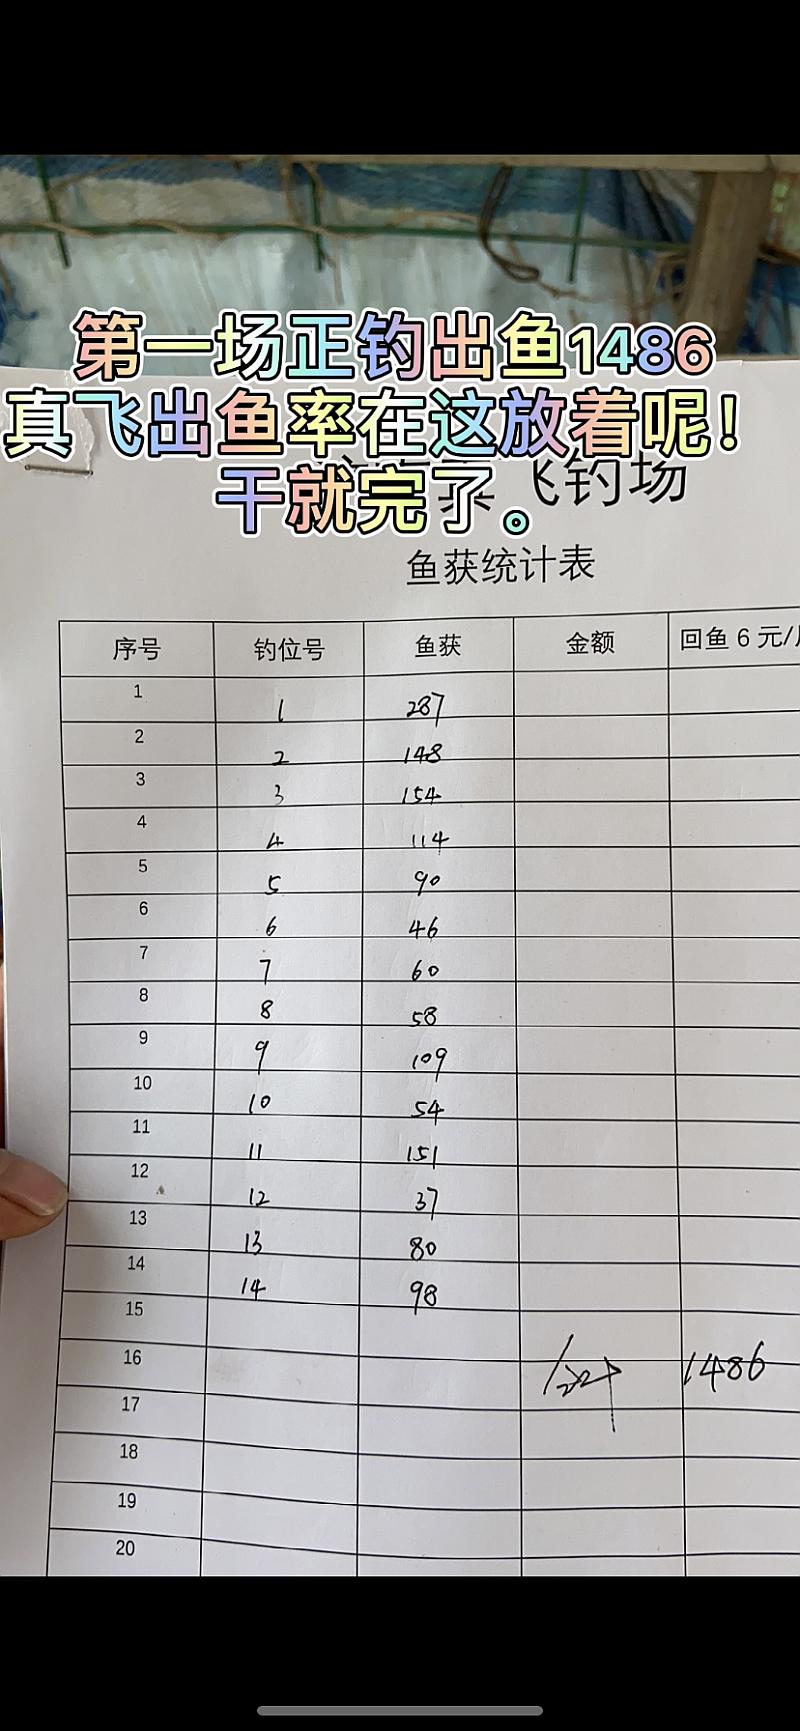 第一场正钓出鱼1486
真飞出鱼率在这放着呢！
干就完了。
飞钓场
鱼获统计表
序号 钓位号 鱼获 金额 回鱼6元/
1 1 287
2 2 148
3 3 154
4 4 114
5 5 90
6 6 46
7 7 60
8 8 58
9 9 109
10 10 54
11 11 151
12 12 37
13 13 80
14 14 98
15
16 1486
17
18
19
20